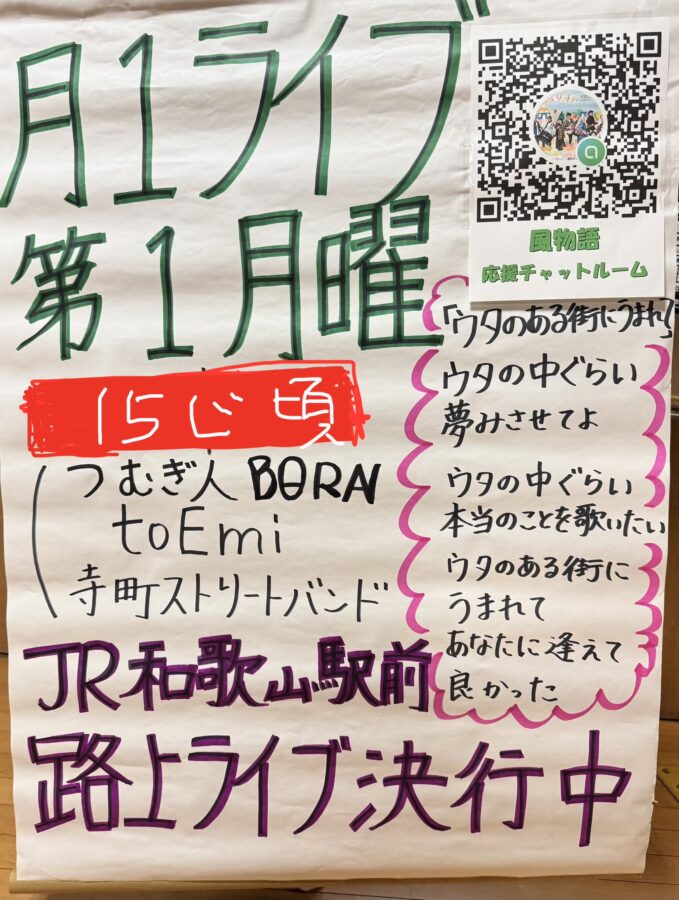 月1ライブ
第1月曜
15じ頃
つむぎ人BORN
toEmi
寺町ストリートバンド
JR和歌山駅前
路上ライブ決行中
風物語
応援チャットルーム
「ウタのある街にうまれ」
ウタの中ぐらい
夢みさせてよ
ウタの中ぐらい
本当のことを歌いたい
ウタのある街に
うまれて
あなたに逢えて
良かった